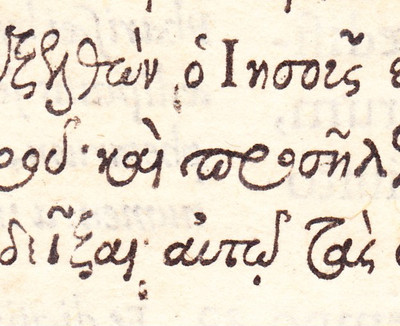 ξελθὼν ὁ Ιησοῦς ε
ροῦ· καὶ προσῆλ
δεῖξαι αὐτῷ τὰς